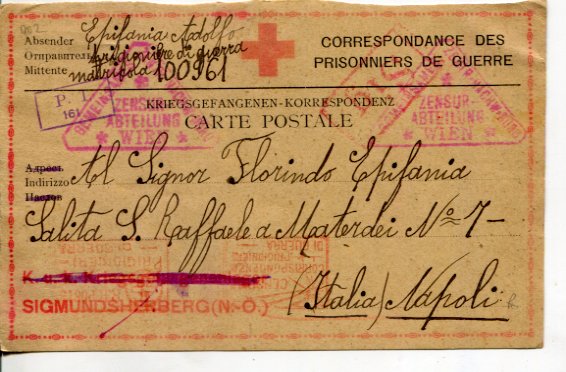 Absender Epifania Adolfo
Отправитель prigioniere di guerra
Mittente matricola 100961
CORRESPONDANCE DES
PRISONNIERS DE GUERRE
P.
161
ZENSUR-
ABTEILUNG
WIEN
ZENSUR-
ABTEILUNG
WIEN
KRIEGSGEFANGENEN-KORRESPONDENZ
CARTE POSTALE
Адресъ
Indirizzo Al Signor Florindo Epifania
Salita S. Raffaele a Materdei No 7-
K. u. k.
SIGMUNDSHERBERG (N.-Ö.)
(Italia) Napoli